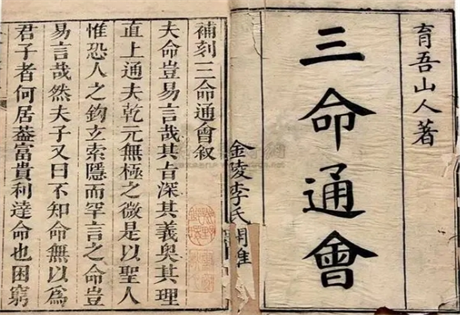 育吾山人著
三命通會
金陵李氏開
補刻三命通會叙
夫命豈易言哉其旨深其義奧其理
直上通夫乾元無極之微是以聖人
惟恐人之鉤玄索隱而罕言之命豈
易言哉然夫子又曰不知命無以爲
君子者何居葢富貴利達命也困窮